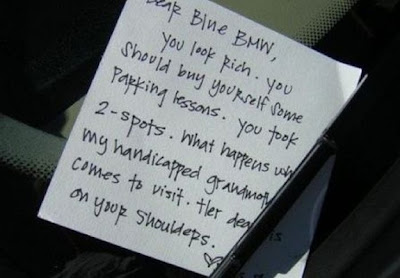 Dear Blue BMW,
You look rich. You
should buy yourself some
parking lessons. You took
2-spots. What happens
my handicapped
comes to visit. Her
on your shoulders.